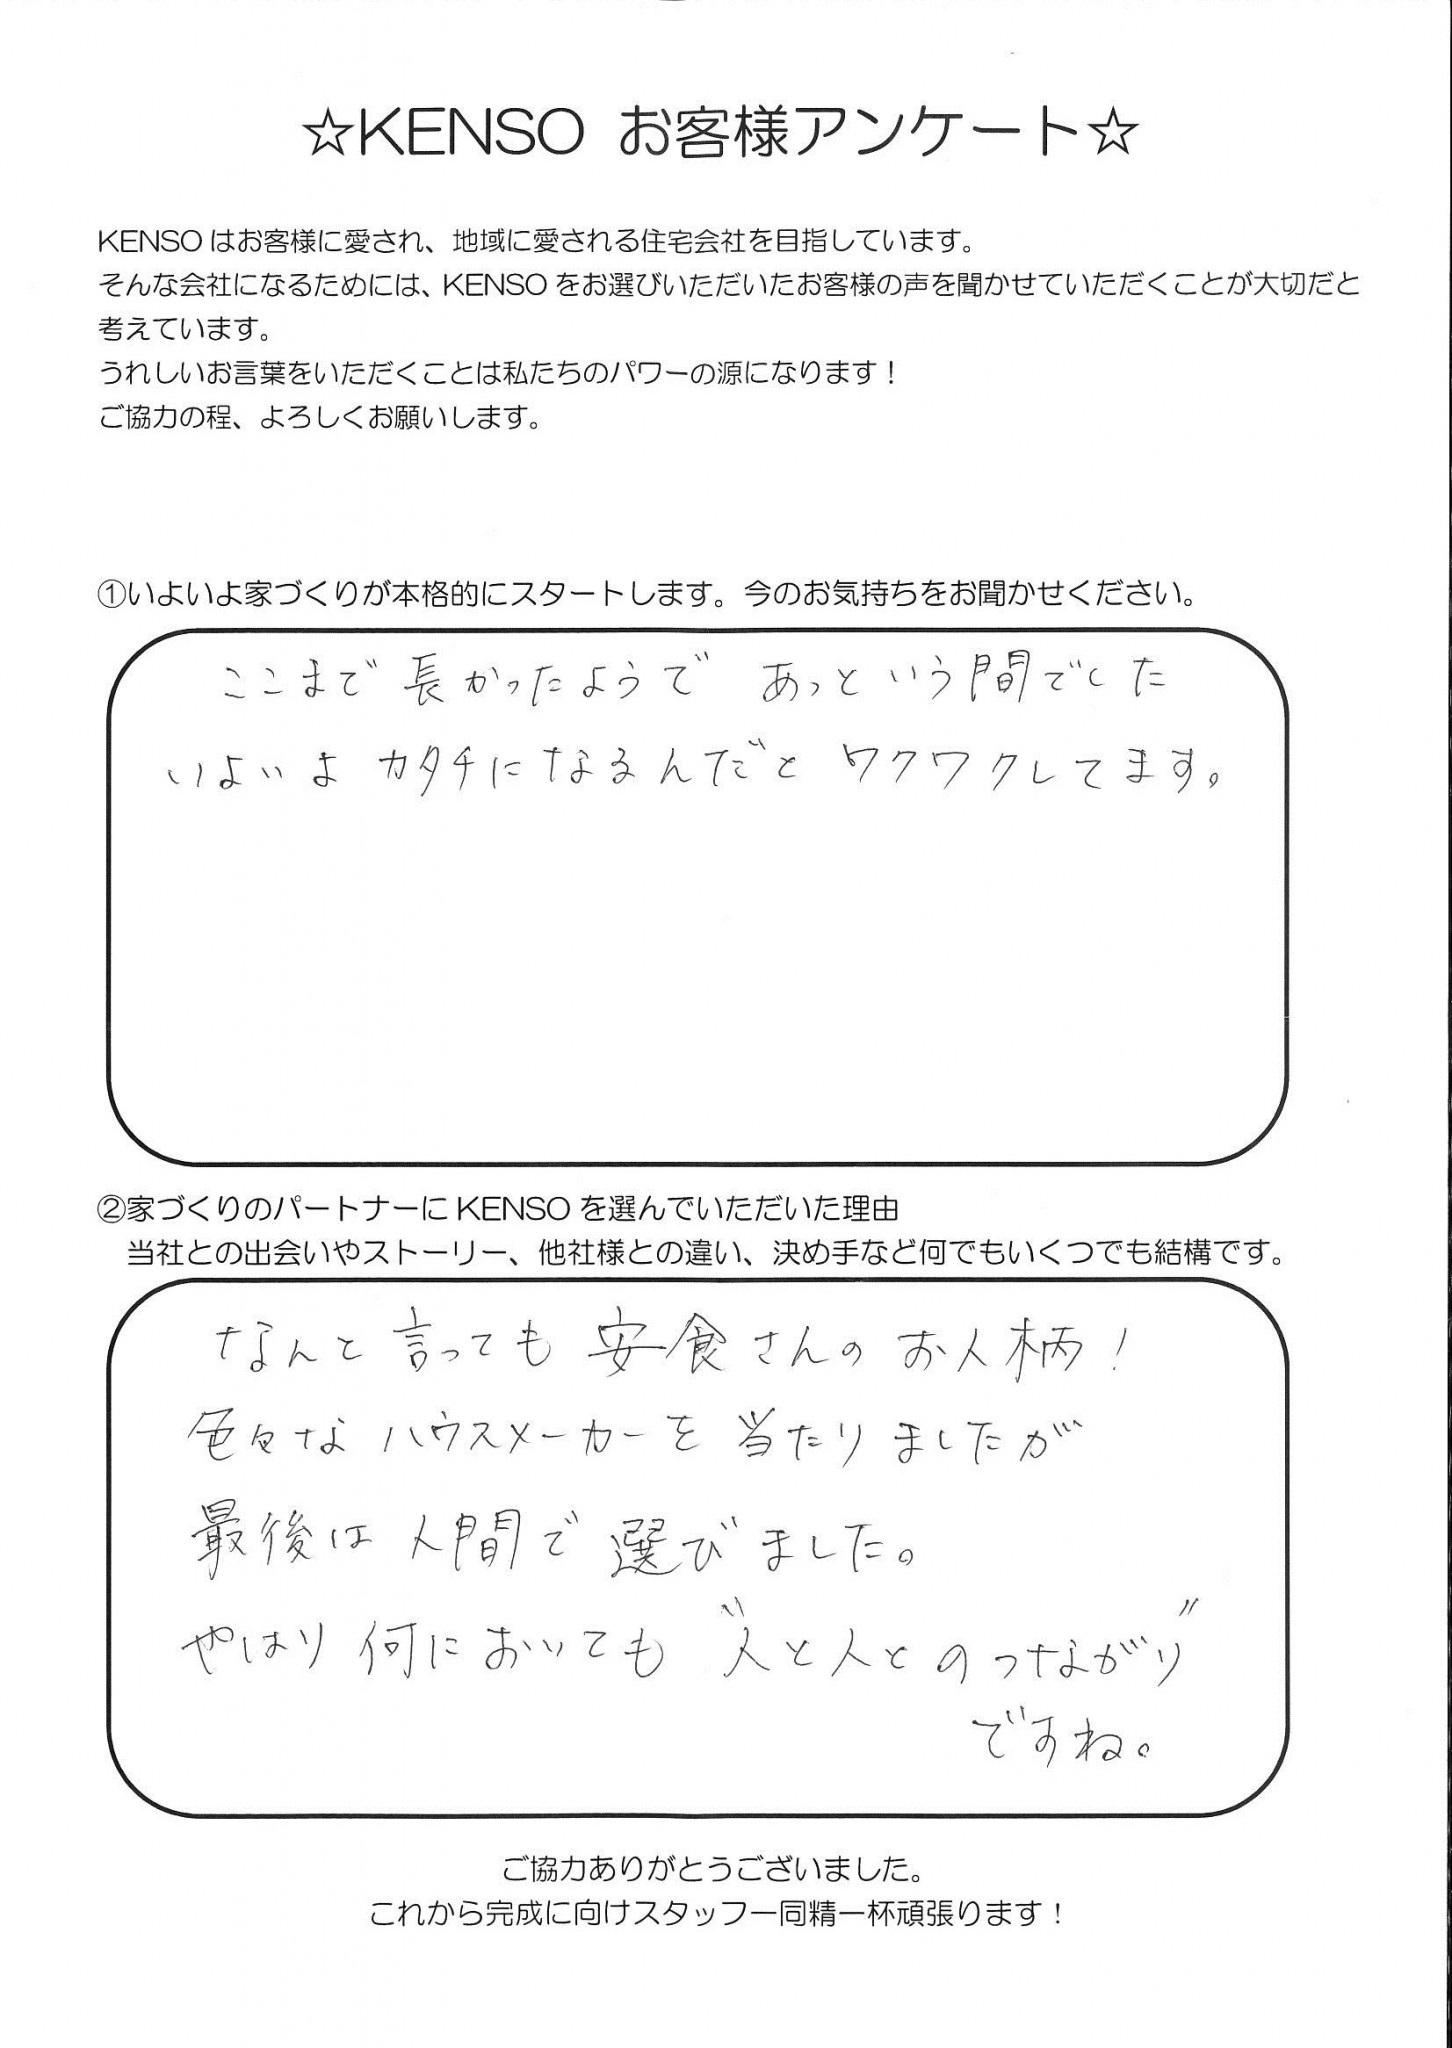 ☆KENSO お客様アンケート☆
KENSO はお客様に愛され、地域に愛される住宅会社を目指しています。
そんな会社になるためには、KENSO をお選びいただいたお客様の声を聞かせていただくことが大切だと
考えています。
うれしいお言葉をいただくことは私たちのパワーの源になります！
ご協力の程、よろしくお願いします。
①いよいよ家づくりが本格的にスタートします。今のお気持ちをお聞かせください。
ここまで 長かったようで あっという間でした
いよいよ カタチになるんだと ワクワクしてます。
②家づくりのパートナーに KENSO を選んでいただいた理由
当社との出会いやストーリー、他社様との違い、決め手など何でもいくつでも結構です。
なんと言っても 安食さんの お人柄！
色々な ハウスメーカーを 当たりましたが
最後は 人間で 選びました。
やはり 何においても "人と人とのつながり"
ですね。
ご協力ありがとうございました。
これから完成に向けスタッフ一同精一杯頑張ります！